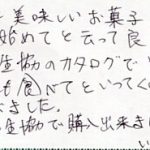 美味しいお菓子
始めてと云って良
生協のカタログで
も食べてといってく
きました。
生協で購入出来ま
い